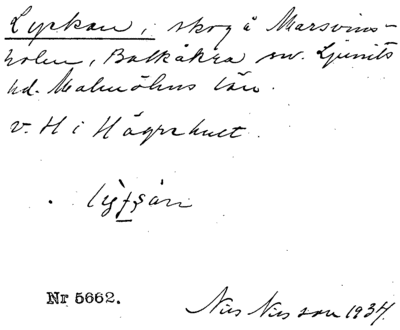 Lyckan, skog å Marsvins-
holm, Balkåkra sn. Ljunits
hd. Malmöhus län.
v. H i
Nr 5662.
Nils Nilsson 1934.